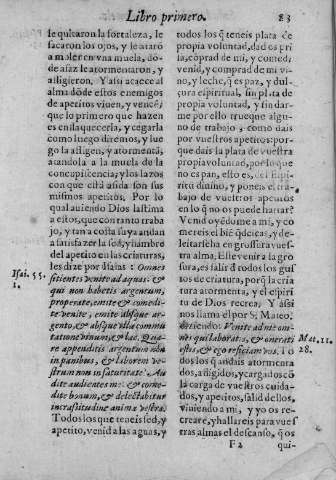 Libro primero. 83
le quitaron la fortaleza, le
sacaron los ojos, y le ataro
a moler en vna muela, dō-
de assaz le atormentaron, y
afligieron. Y assi acaece al
alma dōde estos enemigos
de apetitos viuen, y vencē;
que lo primero que hazen
es enflaquecerla, y cegarla
como luego diremos, y lue-
go la afligen, y atormentā,
atandola a la muela de la
concupiscencia; y los lazos
con que està asida son sus
mismos apetitos. Por lo
qual auiendo Dios lastima
a estos, que con tanto traba
jo, y tan a costa suya andan
a satisfazer la sed, y hambre
del apetito en las criaturas,
les dize por Isaias: Omnes
sitientes venite ad aquas: &
qui non habetis argentum,
properate, emite & comedi-
te venite, emite absque ar-
gento, & absque vlla cōmu
tatione vinum, & lac. Qua-
re appenditis argentum non
in panibus, & laborem ves-
trum non in saturitate? Au
dite audientes me: & come-
dite bonum, & delectabitur
in crassitudine anima vestra.
Todos los que teneis sed, y
apetito, venid a las aguas, y
Isai. 55.
1.
todos los q̄ teneis plata de
propia voluntad, dad os pri
sa, coprad de mi, y comed;
venid, y comprad de mi vi-
no, y leche, q̄ es paz, y dul-
çura espiritual, sin plata de
propia voluntad, y sin dar-
me por ello trueque algu-
no de trabajo, como dais
por vuestros apetitos: por-
que dais la plata de vuestra
propia voluntad, por lo que
no es pan, esto es, del Espi-
ritu diuino, y poneis el tra-
bajo de vuestros apetitos
en lo q̄ no os puede hartar?
Venid oyēdome a mi, y co
mereis el biē q̄ deseais; y de-
leitarseha en grossura vues-
tra alma. Este venir a la gro
sura, es salir d̄ todos los gus
tos de criatura; porq̄ la cria
tura atormenta, y el espiri
tu de Dios recrea. Y assi
nos llama el por S. Mateo.
diziendo: Venite ad me om-
nes qui laboratis, & onerati
estis, & ego reficiam vos. To
dos los q̄ andais atormenta
dos, afligidos, y cargados cō
la carga de vuestros cuida-
dos, y apetitos, salid dellos,
viniendo a mi, y yo os re-
creare, y hallareis para vues
tras almas el descanso, q̄ os
Mat. 11.
28.
F 2 qui-